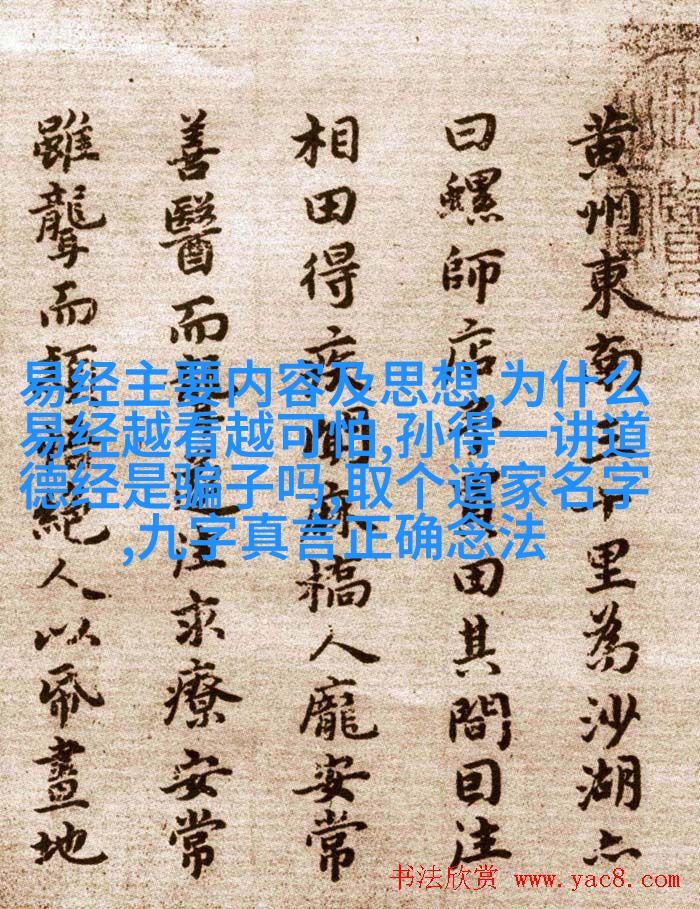 黄州東南三十里為沙湖亦
曰螺師店予買田其間囙往
相田得疾聞麻橋人龐安常
善醫而聾遂往求療安常
雖聾而頴悟絕人以帋畫地
易经主要内容及思想,为什么
易经越看越可怕,孙得一讲道
德经是骗子吗,取个道家名字
,九字真言正确念法
书法欣赏 www.yac8.com